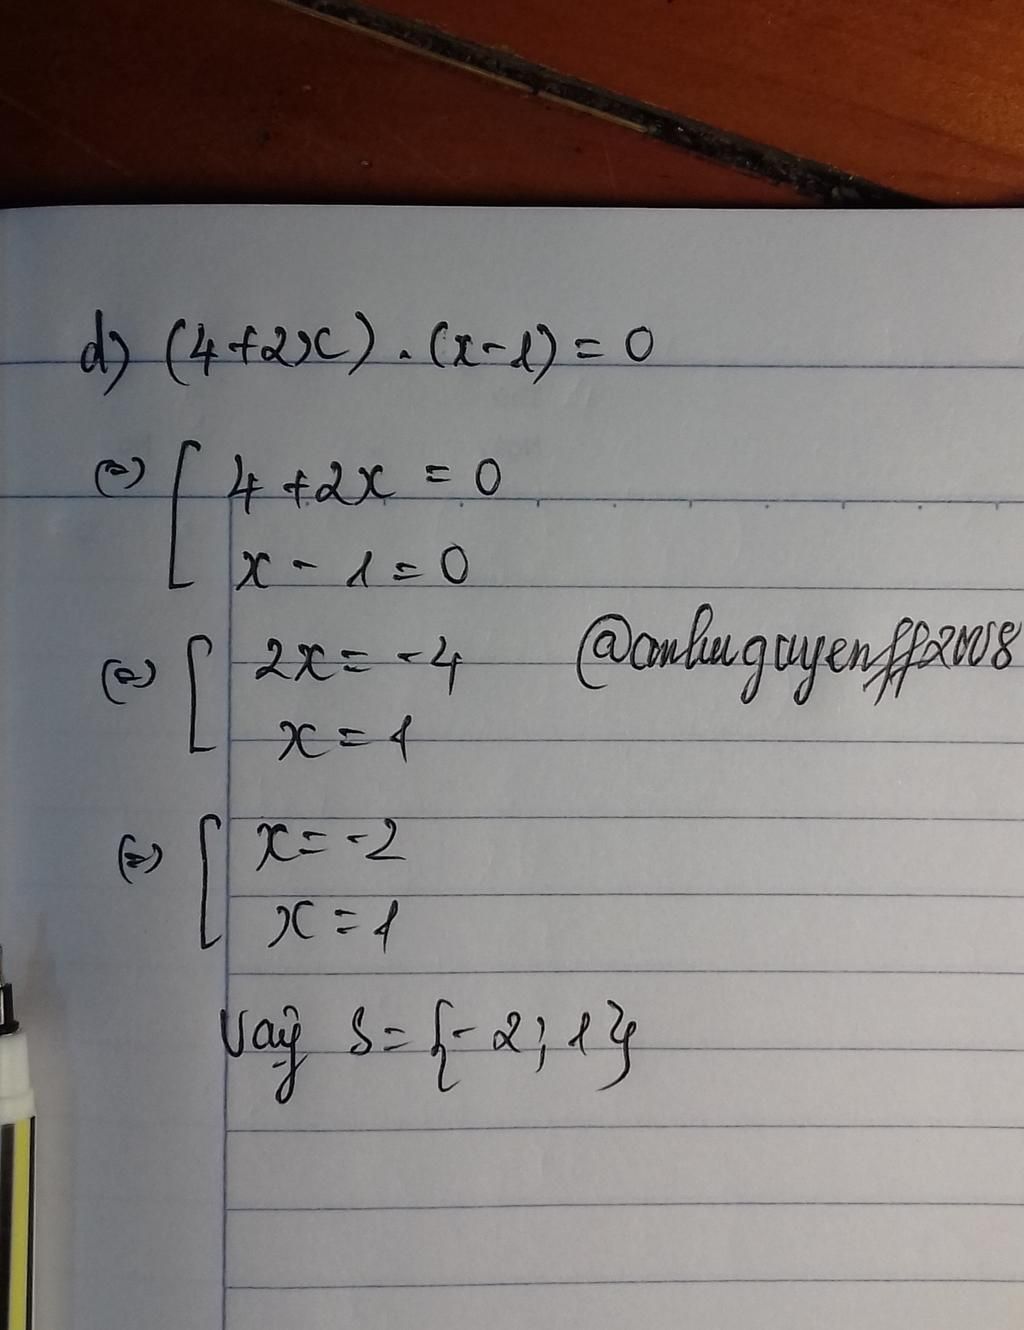 d) (4+2x).(x-1)=0
(=) [ 4+2x=0
x-1=0
(=) [ 2x=-4
x=1
@anhnguyenff2008
(=) [ x=-2
x=1
Vậy S={-2;1}